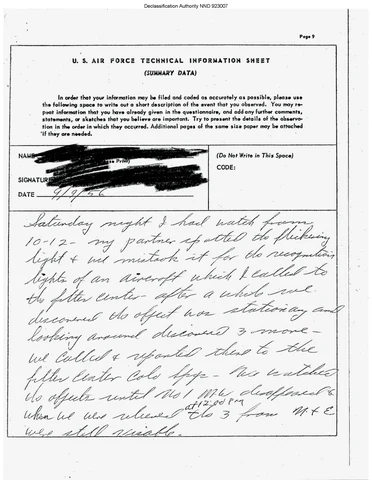 Declassification Authority NND 923007
Page 9
U. S. AIR FORCE TECHNICAL INFORMATION SHEET
(SUMMARY DATA)
In order that your information may be filed and coded as accurately as possible, please use
the following space to write out a short description of the event that you observed. You may re-
peat information that you have already given in the questionnaire, and add any further comments,
statements, or sketches that you believe are important. Try to present the details of the observa-
tion in the order in which they occurred. Additional pages of the same size paper may be attached
if they are needed.
NAME
(Please Print)
(Do Not Write in This Space)
CODE:
SIGNATURE
DATE 9/9/56
Saturday night I had watch from
10-12 - my partner spotted the flickering
light & we mistook it for the recognition
lights of an aircraft which I called to
the filter center - after a while we
discovered the object was stationary and
looking around discovered 3 more -
we called & reported these to the
filter center Colo Spgs - We watched
the objects until No 1 N.W. disappeared &
when we were relieved at 12:00 PM the 3 from N & E
were still visible.